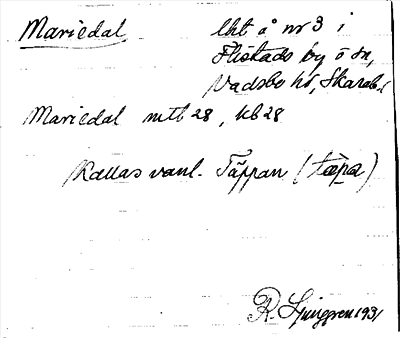 Mariedal lht å nr 3 i
Flistads by o sn,
Vadsbo hd, Skarab.l
Mariedal mtl 28, kb 28
Kallas vanl. Täppan (tæpa)
R. Ljunggren 1931